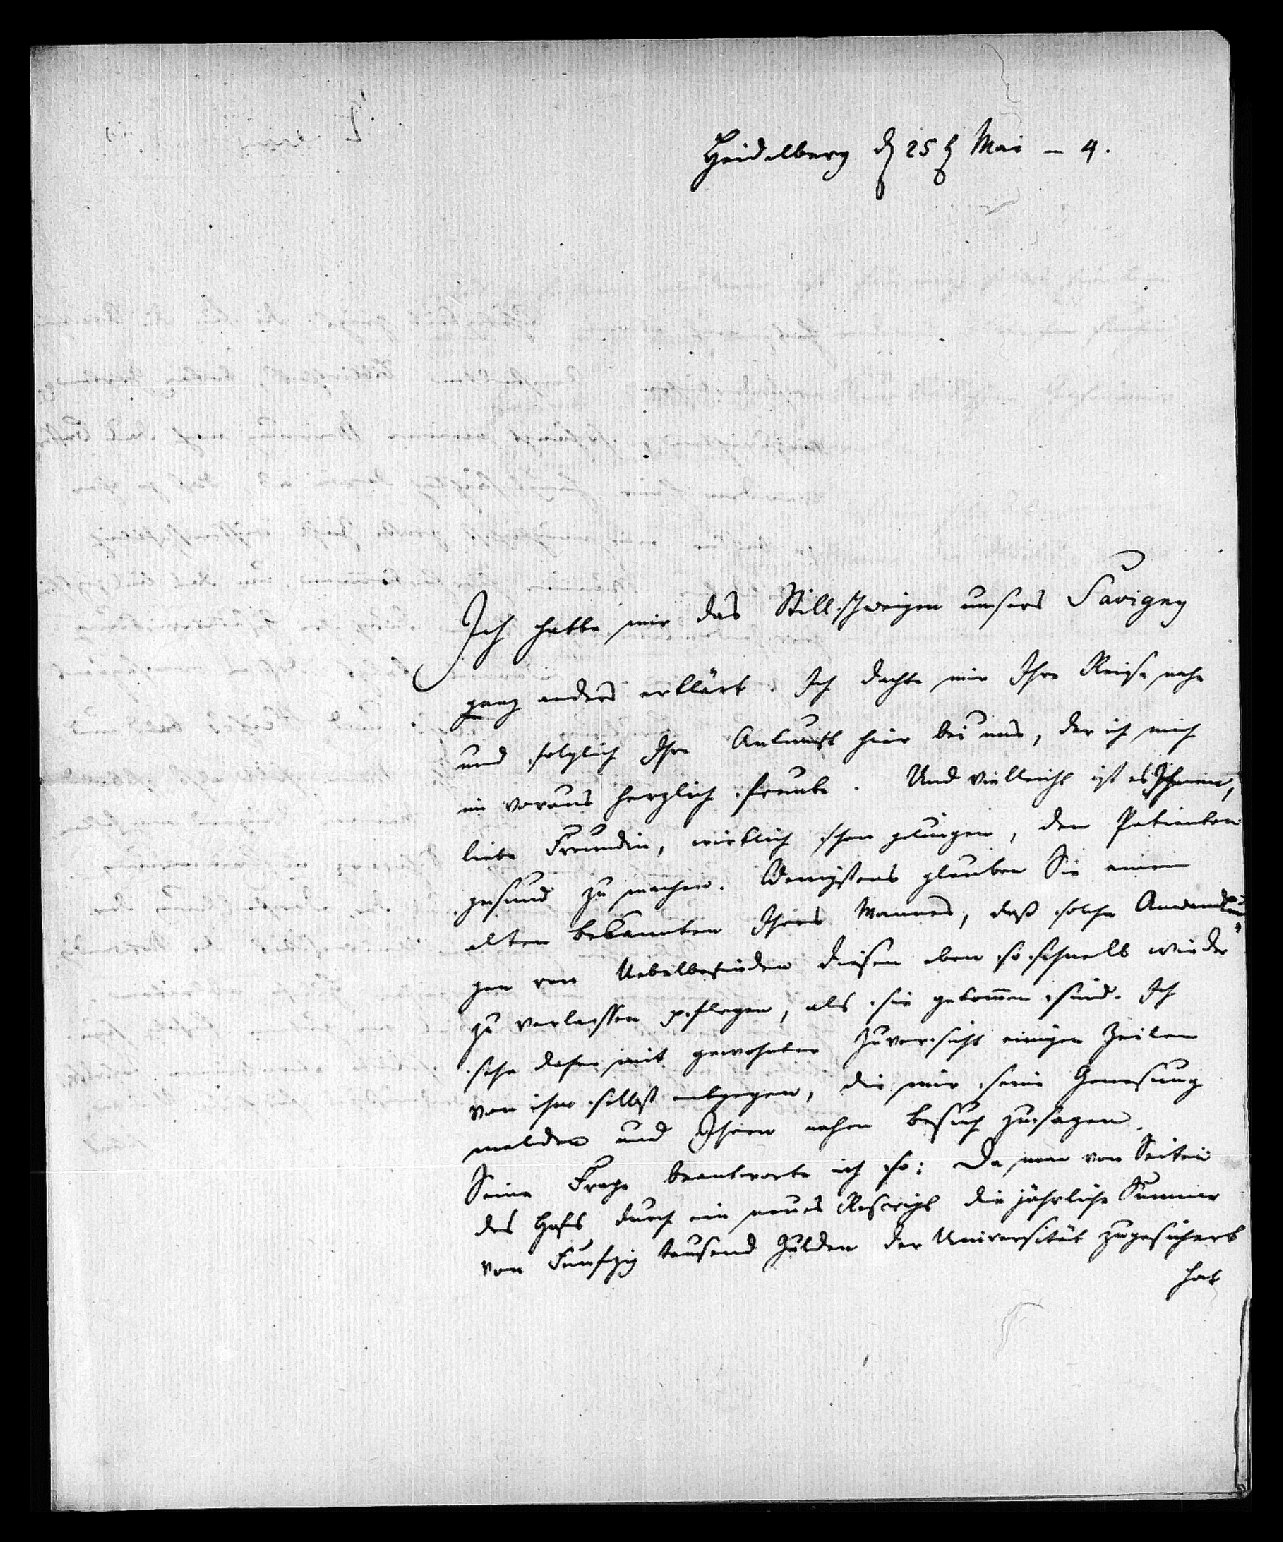 Heidelberg d 25 t Mai – 4.
Ich hatte mir das Stillschweigen unsers Savigny
ganz anders erklärt. Ich dachte mir Ihre Reise nahe
und folglich Ihre Ankunft hier bei uns, der ich mich
im voraus herzlich freute. Und vielleicht ist es Ihnen,
liebe Freundin, wirklich schon gelungen, den Patienten
gesund zu machen. Wenigstens glauben Sie einem
alten bekannten Ihres Mannes, daß solche Anwandlun
gen von Uebelbefinden diesen eben so schnell wieder
zu verlassen pflegen, als sie gekommen sind. Ich
sehe daher mit gewohnter Zuversicht einigen Zeilen
von ihm selbst entgegen, die mir seine Genesung
melden und Ihren nahen besuch zusagen.
Seine Frage beantworte ich so: Da man von Seiten
des Hofs durch ein neues Rescript die jährliche Summe
von Funfzig tausend Gulden der Universität zugesichert
hat